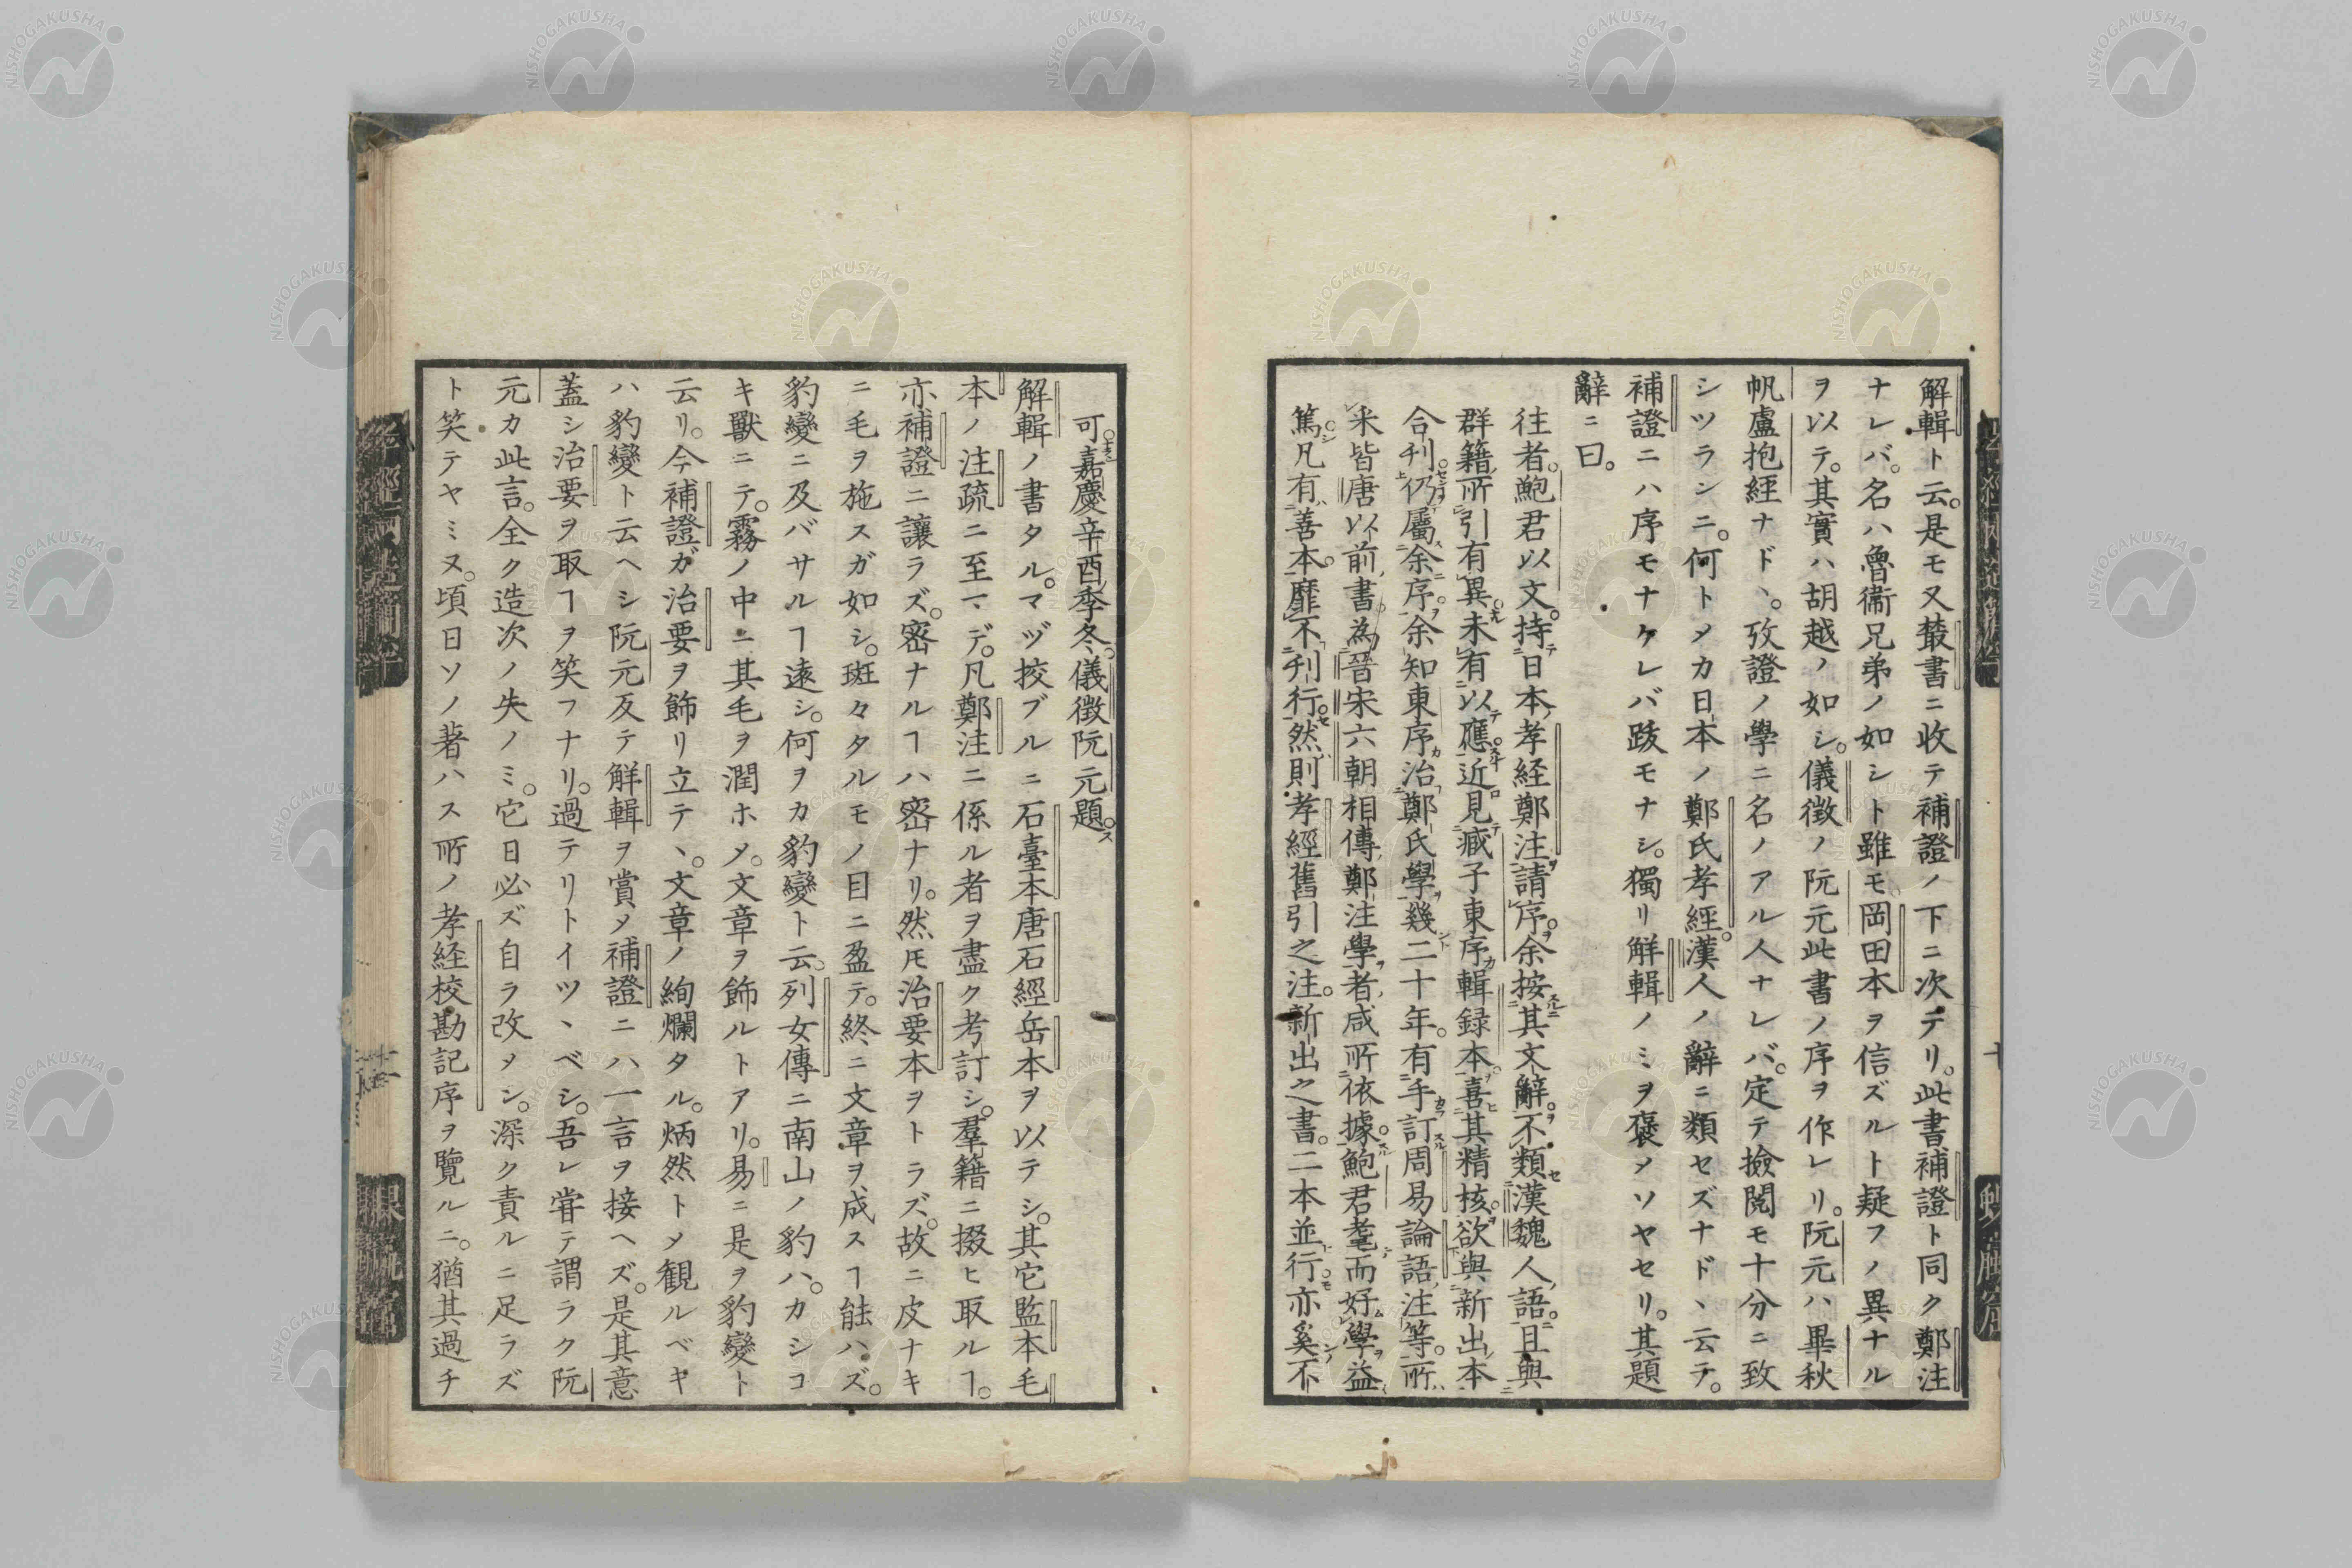 解輯ト云。是モ又叢書ニ收テ補證ノ下ニ次テリ。此書補證ト同ク鄭注
ナレバ。名ハ魯衞兄弟ノ如シト雖モ岡田本ヲ信ズルト疑フノ異ナル
ヲ以テ。其實ハ胡越ノ如シ。儀徴ノ阮元此書ノ序ヲ作レリ。阮元ハ畢秋
帆盧抱経ナド、。攷證ノ學ニ名ノアル人ナレバ。定テ撿閲モ十分ニ致
シツランニ。何トメカ日本ノ鄭氏孝經。漢人ノ辭ニ類セズナド、云テ。
補證ニハ序モナケレバ跋モナシ。獨リ解輯ノミヲ褒メソヤセリ。其題
辭ニ曰。
往者。鮑君以文。持日本孝経鄭注請序。余按其文辭。不類漢魏人語。且與
群籍所引有異。未有以應。近見臧子東序輯録本。喜其精核。欲與新出本
合刊。仍屬余序。余知東序治鄭氏學幾二十年。有手訂周易論語注等。所
釆皆唐以前書。為晉宋六朝相傳鄭注學者咸所依據。鮑君耄而好學益
篤。凡有善本。靡不刊行。然則孝經舊引之注。新出之書。二本並行。亦奚不
可。嘉慶辛酉季冬。儀徴阮元題。
解輯ノ書タル。マヅ挍ブルニ石臺本唐石經岳本ヲ以テシ。其它監本毛
本ノ注疏ニ至ヽデ。凡鄭注ニ係ル者ヲ盡ク考訂シ。羣籍ニ掇ヒ取ルヿ。
亦補證ニ讓ラズ。密ナルヿハ密ナリ。然モ治要本ヲトラズ。故ニ皮ナキ
ニ毛ヲ施スガ如シ。斑々タルモノ目ニ盈テ。終ニ文章ヲ成スヿ能ハズ。
豹變ニ及バサルヿ遠シ。何ヲカ豹變ト云。列女傳ニ南山ノ豹ハ。カシコ
キ獸ニテ。霧ノ中ニ其毛ヲ潤ホメ。文章ヲ飾ルトアリ。易ニ是ヲ豹變ト
云リ。今補證ガ治要ヲ飾リ立テ、。文章ノ絢爛タル。炳然トメ観ルベキ
ハ豹變ト云ヘシ阮元反テ解輯ヲ賞メ補證ニハ一言ヲ接ヘズ。是其意
蓋シ治要ヲ取ヿヲ笑フナリ。過テリトイツ、ベシ。吾レ甞テ謂ラク阮
元カ此言。全ク造次ノ失ノミ。它日必ズ自ラ改メシ。深ク責ルニ足ラズ
ト笑テヤミヌ。頃日ソノ著ハス所ノ孝経校勘記序ヲ覽ルニ。猶其過チ